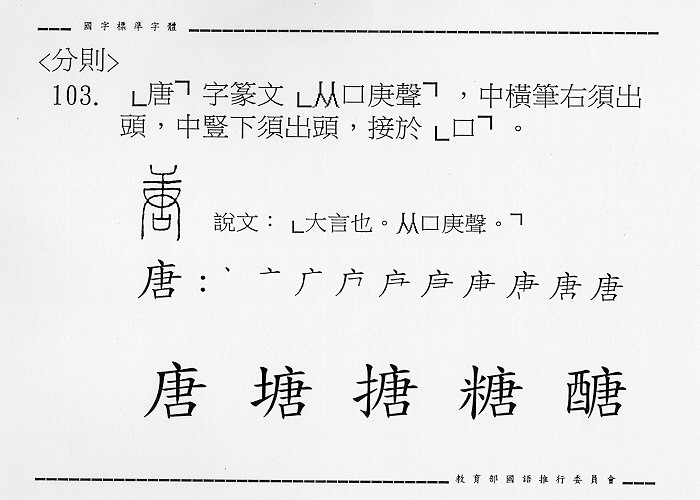 國字標準字體
<分則>
103. 「唐」字篆文「从口庚聲」，中橫筆右須出
頭，中豎下須出頭，接於「口」。
說文：「大言也。从口庚聲。」
唐：
唐 塘 搪 糖 醣
教育部國語推行委員會